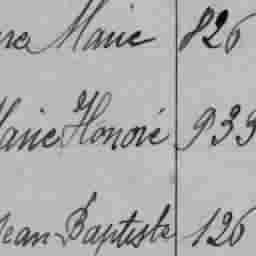 Marie 826
Marie Honoré 933
Jean Baptiste 126